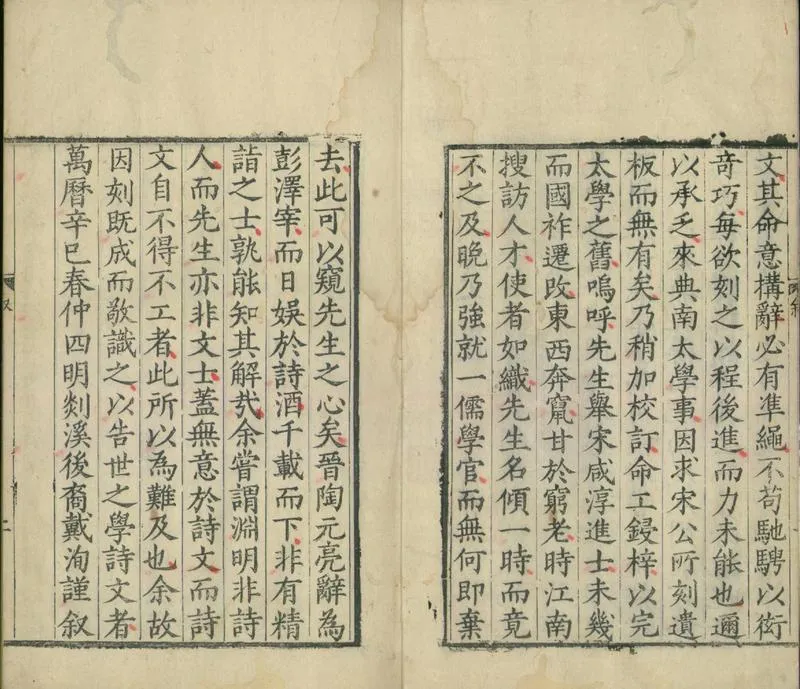 文其命意構辭必有準繩不苟馳騁以衒
奇巧每欲刻之以程後進而力未能也邇
以承乏來典南太學事因求宋公所刻遺
板而無有矣乃稍加校訂命工鋟梓以完
太學之舊嗚呼先生舉宋咸淳進士未幾
而國祚遷改東西奔竄甘於窮老時江南
搜訪人才使者如織先生名傾一時而竟
不之及晚乃強就一儒學官而無何即棄
去此可以窺先生之心矣晉陶元亮辭為
彭澤宰而日娛於詩酒千載而下非有精
詣之士孰能知其解㢤余嘗謂淵明非詩
人而先生亦非文士蓋無意於詩文而詩
文自不得不工者此所以為難及也余故
因刻既成而敬識之以告世之學詩文者
萬曆辛巳春仲四明剡溪後裔戴洵謹叙
叙
二